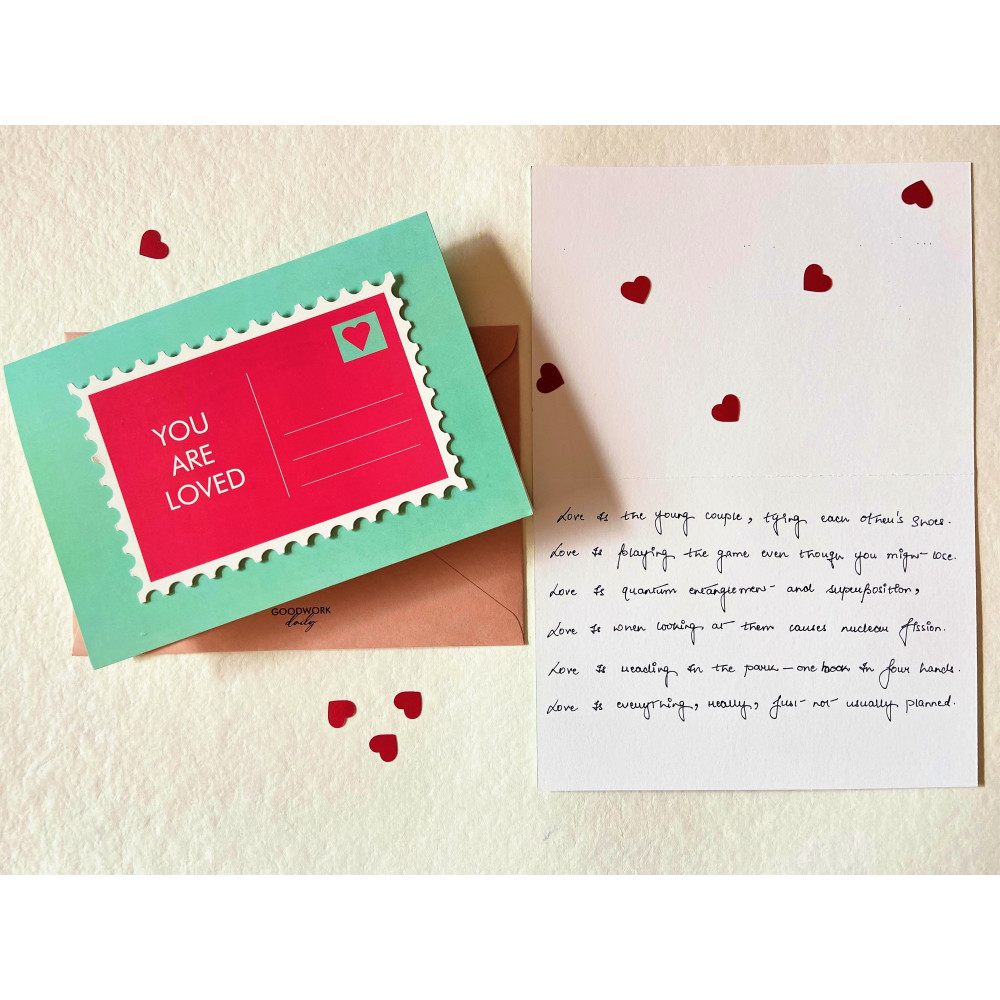 YOU
ARE
LOVED
GOODWORK
daily
Love is the young couple, tying each other's shoes.
Love is playing the game even though you might lose.
Love is quantum entanglement and superposition,
Love is when looking at them causes nuclear fission.
Love is reading in the park — one book in four hands.
Love is everything, really, just not usually planned.